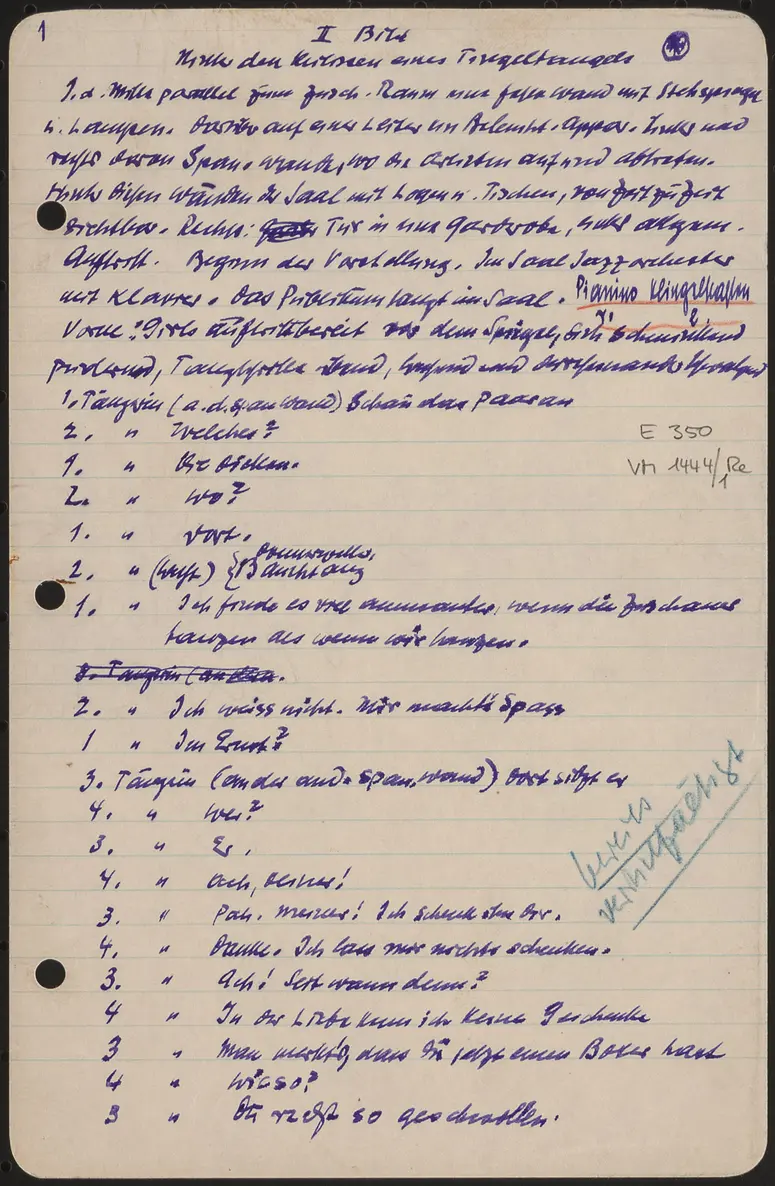 1
II Bild
Hinter den Kulissen eines Tingeltangels
I. d. Mitte parallel zum Zusch. Raum eine Wand mit
u. Lampen. Darüber auf einer Leiter ein Beleucht. Appar. Links und
rechts davon Span. wände, wo die Artisten auf und abtreten.
Hinter diesen Wänden der Saal mit Logen u. Tischen, von Zeit zu Zeit
sichtbar. Rechts: Tür in eine Garderobe, links allgem.
Auftritt. Beginn der Vorstellung. Im Saal Jazzorchester
mit Klavier. Das Publikum tanzt im Saal. Pianino Klingelkasten
Vorne: Girls auftrittbereit vor dem Spiegel, sich schminkend
pudernd, und
1. Tänzerin (a. d. spanwand) Schau das Paar an
2. " Welches?
1. " Die Dicken.
2. " Wo?
1. " Dort.
2. " (lacht) Bauchtanz
1. " Ich finde es viel amusanter, wenn die Zuschauer
tanzen als wenn wir tanzen.
2. " Ich weiss nicht. Mir macht's Spass
1 " Im Ernst?
3. Tänzerin (an der and. Span. wand) Dort sitzt er
4. " Wer?
3. " Er.
4. " Ach, Deiner!
3. " Pah. Meiner! Ich schenk ihn Dir.
4. " Danke. Ich lass mir nichts schenken.
3. " Ach! Seit wann denn?
4 " In der Liebe kenn ich keine Geschenke
3 " Man merkt's, dass Du jetzt einen Boxer hast
4 " Wieso?
3 " Du redst so geschwollen.
E 350
VM 1444/Re
1
bereits
vervielfältigt